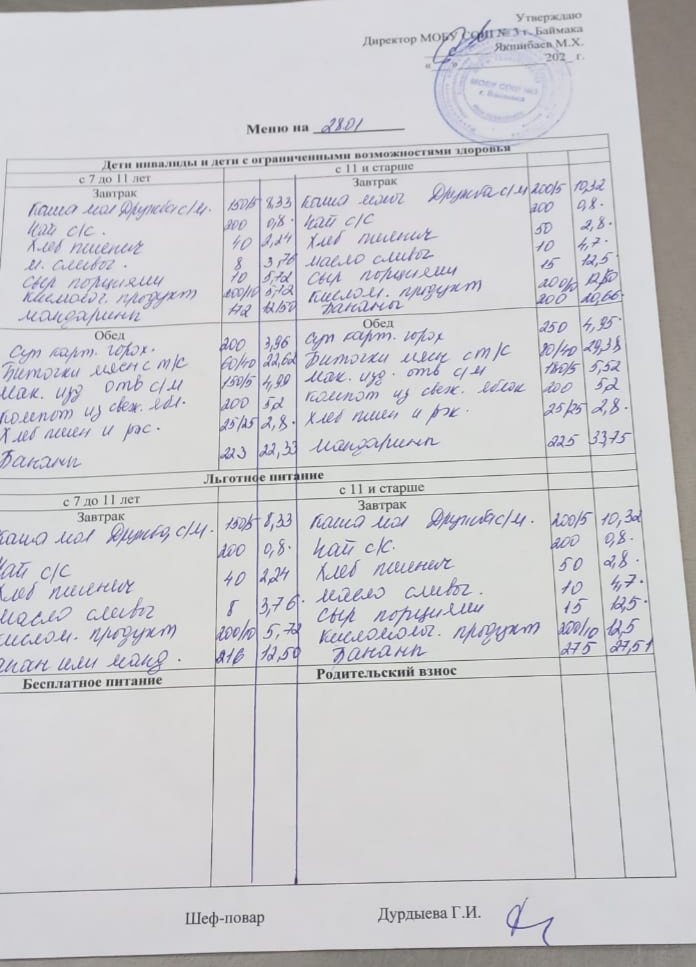 Утверждаю
Директор МОБУ СОШ № 3 г. Баймака
Якшибаев М.Х.
« » 202_ г.
МОБУ СОШ №3
г. Баймака
Меню на 28.01
Дети инвалиды и дети с ограниченными возможностями здоровья
с 7 до 11 лет с 11 и старше
Завтрак Завтрак
Каша мол Дружба с/м. 150/5 8,33 Каша мол Дружба с/м 200/5 10,32
Чай с/с. 200 0,8. Чай с/с 200 0,8.
Хлеб пшенич 40 2,24 Хлеб пшенич 50 2,8.
м. сливоч. 8 3,76 масло сливоч 10 4,7.
Сыр порциями 10 Сыр порциями 15 12,5.
Кисломол. продукт 200/10 5,72 Кислом. продукт 200/10 12,50
мандарины 12,50 Бананы 200 20,66
Обед Обед
Суп карт. горох. 200 3,96 Суп карт. горох 250 4,95.
Биточки мясн с т/с 60/40 22,62 Биточки мясн с т/с 80/40 29,38
Мак. изд отв с/м 150/5 4,99 Мак. изд. отв с/м 180/5 5,52
Компот из свеж. ябл. 200 5,2 Компот из свеж. яблок 200 5,2
Хлеб пшен и рж. 25/25 2,8. Хлеб пшен и рж. 25/25 2,8.
Бананы 223 22,33 Мандарины 225 33,75
Льготное питание
с 7 до 11 лет с 11 и старше
Завтрак Завтрак
Каша мол Дружба с/м. 150/5 8,33 Каша мол Дружба с/м. 200/5 10,32
Чай с/с 200 0,8. Чай с/с. 200 0,8.
Хлеб пшенич 40 2,24 Хлеб пшенич 50 2,8.
масло сливоч 8 3,76. масло сливоч. 10 4,7.
Сыр порциями 15 12,5.
кислом. продукт 200/10 5,72 Кисломолоч. продукт 200/10 12,5
банан или манд. 216 12,50 Бананы 275 27,51
Бесплатное питание Родительский взнос
Шеф-повар Дурдыева Г.И.